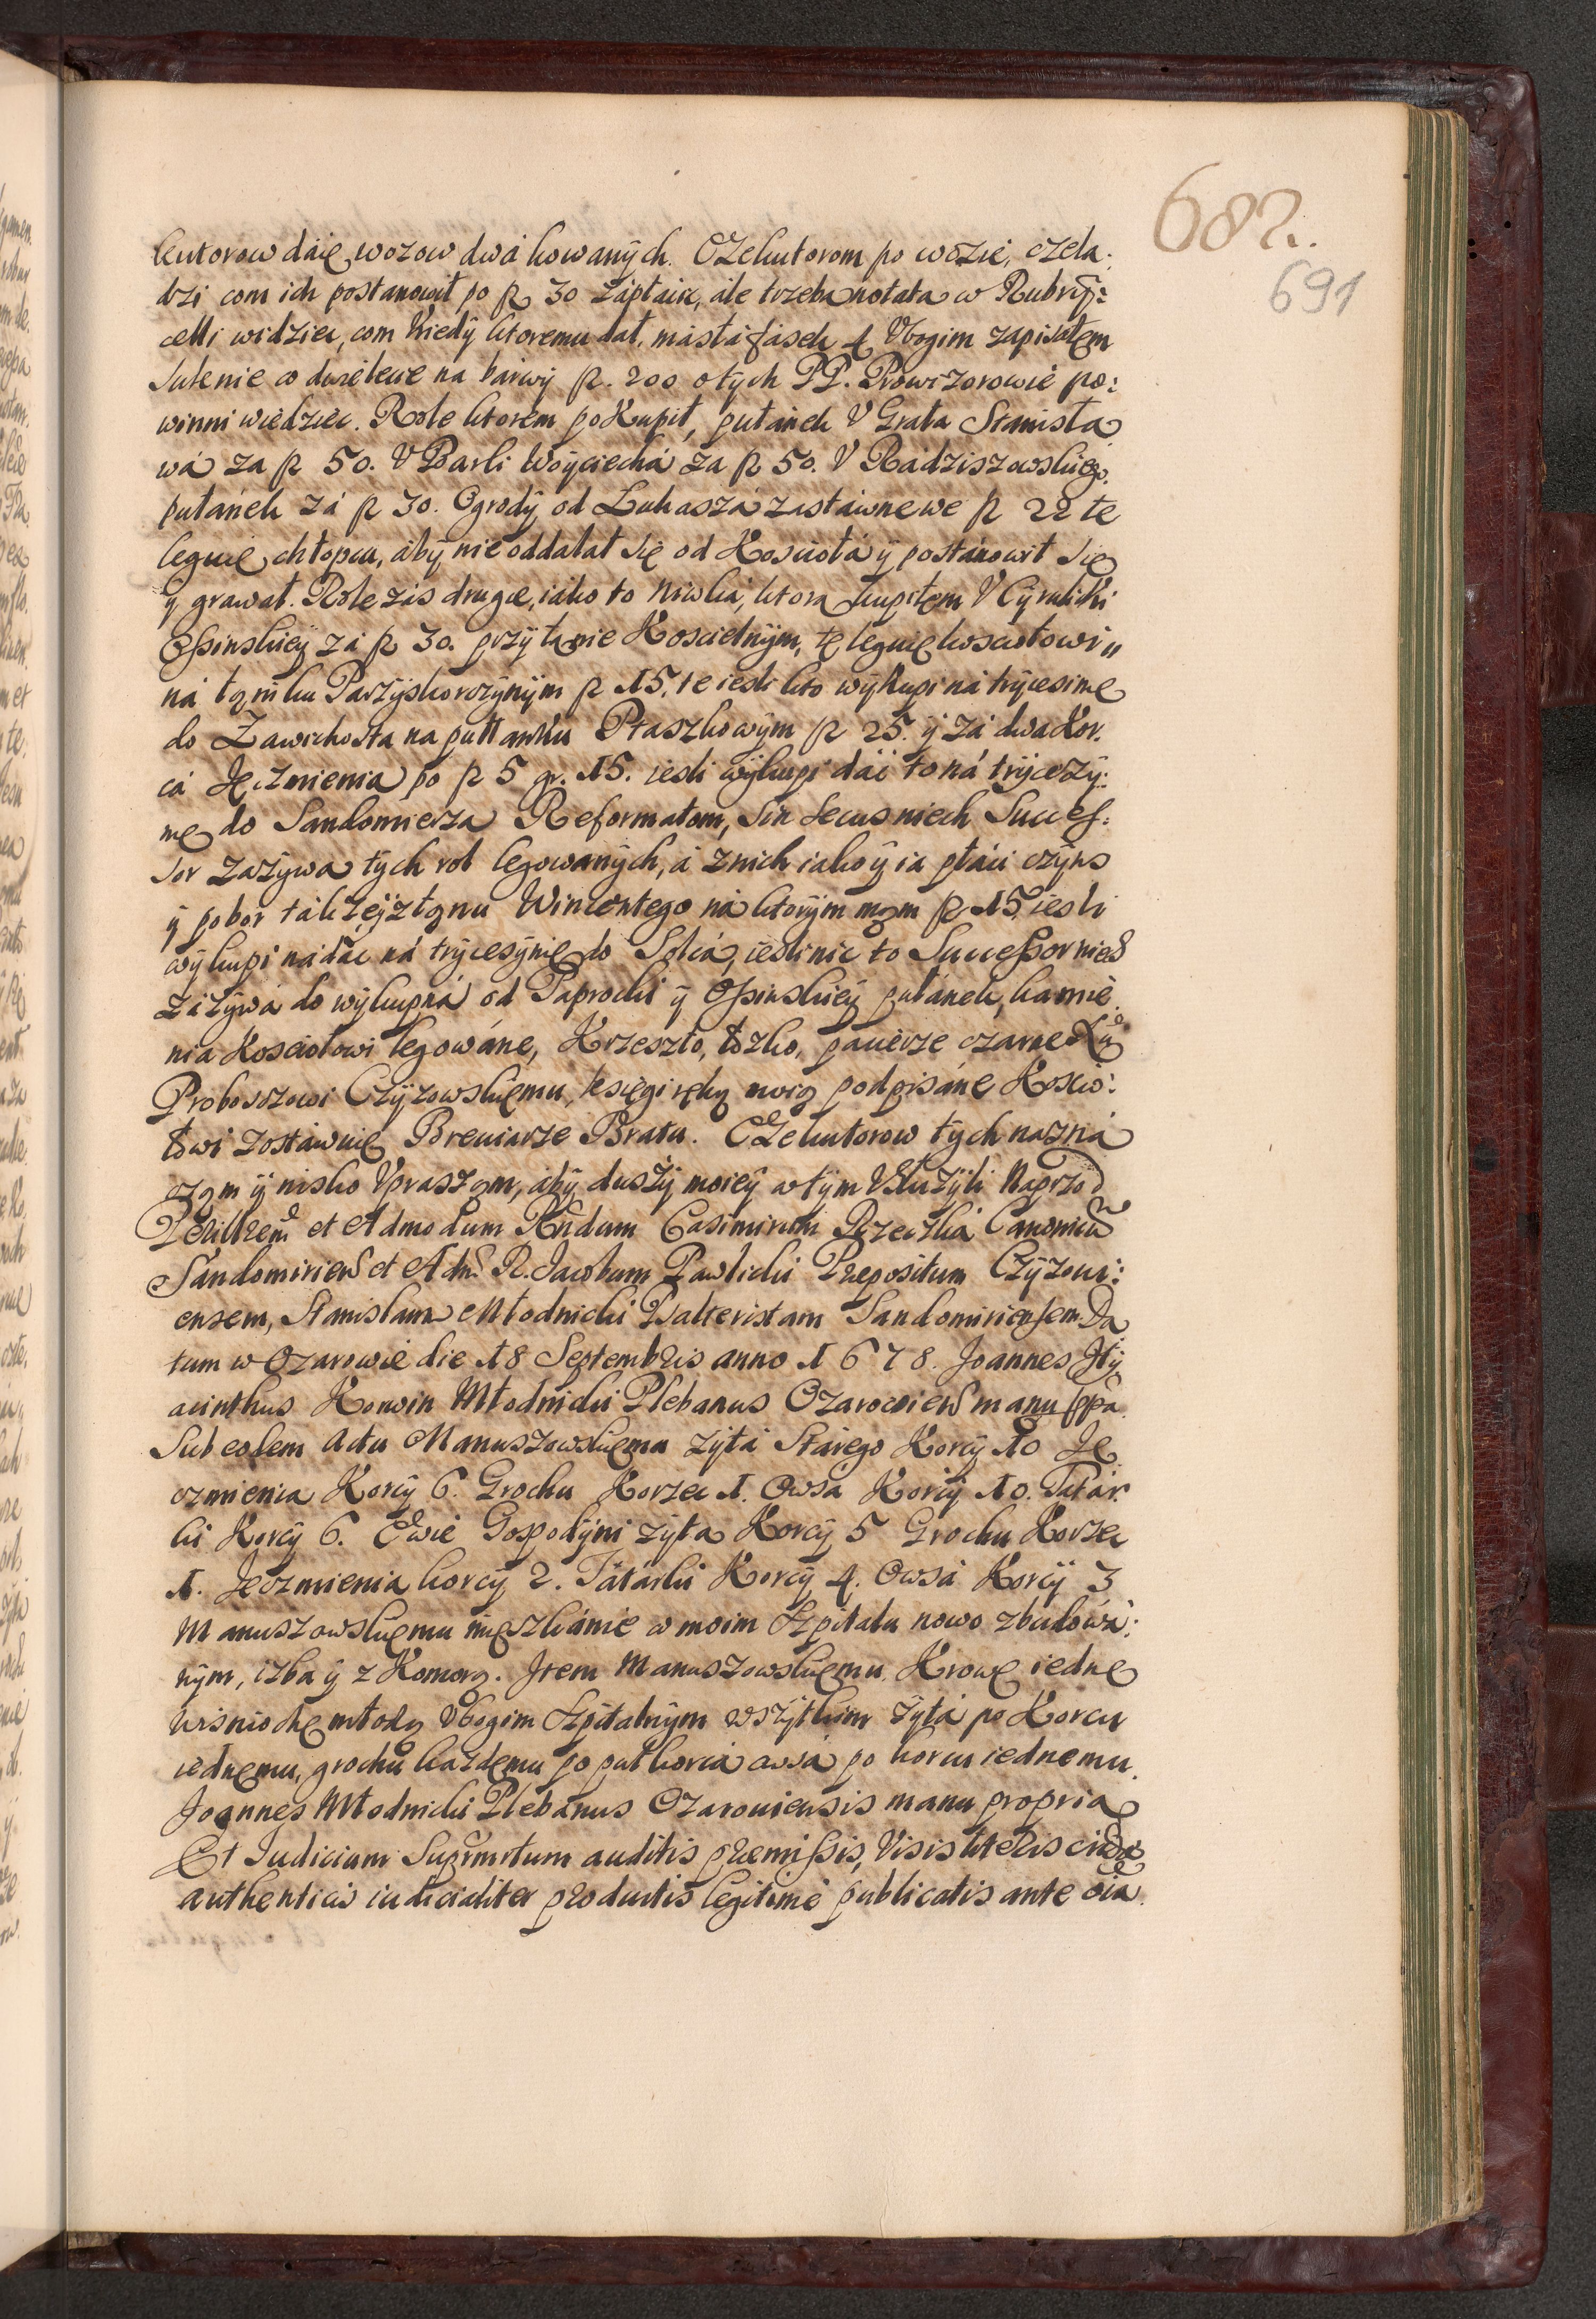 682.
691
kutorow daię wozow dwá kowanÿch. EXekutorom po wozie, czela:
dzi com ich postanowił po fl 30 zápłaić, ále trzeba notata w Rubrÿ:
celli widzieć, com kiedÿ ktoremu dał, másłá fásek 4 Vbogim zapisałem
Sukenie co dweletne na barwÿ fl. 200 o tÿch PP. Prowizorowie po:
winni wiedziec. Role ktorem poKupił, pułánek V Grata Stanisła
wá za fl 50. V Barli Woÿciechá za fl 50. V Rádziszowskieÿ
pułánek zá fl 30. Ogrodÿ od Łukaszá zastáwne we fl 22 te
leguię chłopcu, ábÿ nie oddalał się od Kosciołá ÿ postánowił się
ÿ grawał. Role zás drugie, iáko to Niwká, ktora kupiłem V Cÿrulicki
Ossinskieÿ zá fl 30. przÿ łanie Koscielnÿm, tę leguię kosciołowi
ná łąnku Parzÿskowzÿnÿm fl 15. te iesli kto wÿkupi ná trÿcesimę
do Zawichosta na pułłanku Ptaszkowÿm fl 25. ÿ zá dwa Kor:
cá Jęczmienia po fl 5 gr. 15. iesli wÿkupi dáć to ná trÿcezÿ:
mę do Sandomierza Reformatom, Sin secus niech Succes:
sor zażÿwa tÿch rol legowanÿch, á znich iako ÿ ia płáci czÿns
ÿ pobor tákżeÿ z łąnu Wincentego ná ktorÿm mąm fl 15. iesli
wÿkupi nádác ná trÿcesÿmę do Solcá, iesli nie to Successor niech
záżÿwá do wÿkupná od Paprocki ÿ Ossinskieÿ pułánek, kamie
nia Kosciołowi legowáne, Krzesło, łozko, pacierze czarne
Proboszczowi Czÿżowskiemu, księgi ręką moią podpisáne Koscio:
łowi zostáwuię Breuiarze Bratu. EXekutorow tÿch názná
cząm ÿ nisko Vprasząm, ábÿ duszÿ moieÿ w tÿm Vsłużÿli Naprzod
Perillrem et Admodum Rndum Casimirum Rzeczká Canonicum
Sándomirien et Adm R. Jacobum Pawlicki Præpositum Czÿżoui:
ensem, Stanislaum Młodnicki Psalteristam Sandomiriensem Da
tum w Ozarowie die 18 Septembris anno 1678. Joannes Hÿ
acinthus Korwin Młodnicki Plebanus Ozarowien manu ppa.
Sub eodem Actu Manuszowskiemu Żÿtá Stárego Korcÿ 10 Ję
czmienia Korcÿ 6. Grochu Korzec 1. Owsá Korcÿ 10. Tatár
ki Korcÿ 6. Ewie Gospodÿni żÿta Korcÿ 5 Grochu Korzec
1. Jęczmienia korcÿ 2. Tátárki Korcÿ 4. Owsá Korcÿ 3
Manuszowskiemu mieszkánie w moim Szpitalu nowo zbudowá:
nÿm, izba ÿ z Komorą. Item Manuszowskiemu Krowę iednę
wisniochę młodą Vbogim Szpitalnÿm wszÿtkim żÿtá po Korcu
iednemu, grochu każdemu po puł korcá owsá po korcu iednemu.
Joannes Młodnicki Plebanus Ozarouiensis manu propria
Et Iudicium Supremum auditis præmissis, Visis literis
authenticis iudicialiter productis legitime publicatis ante oia